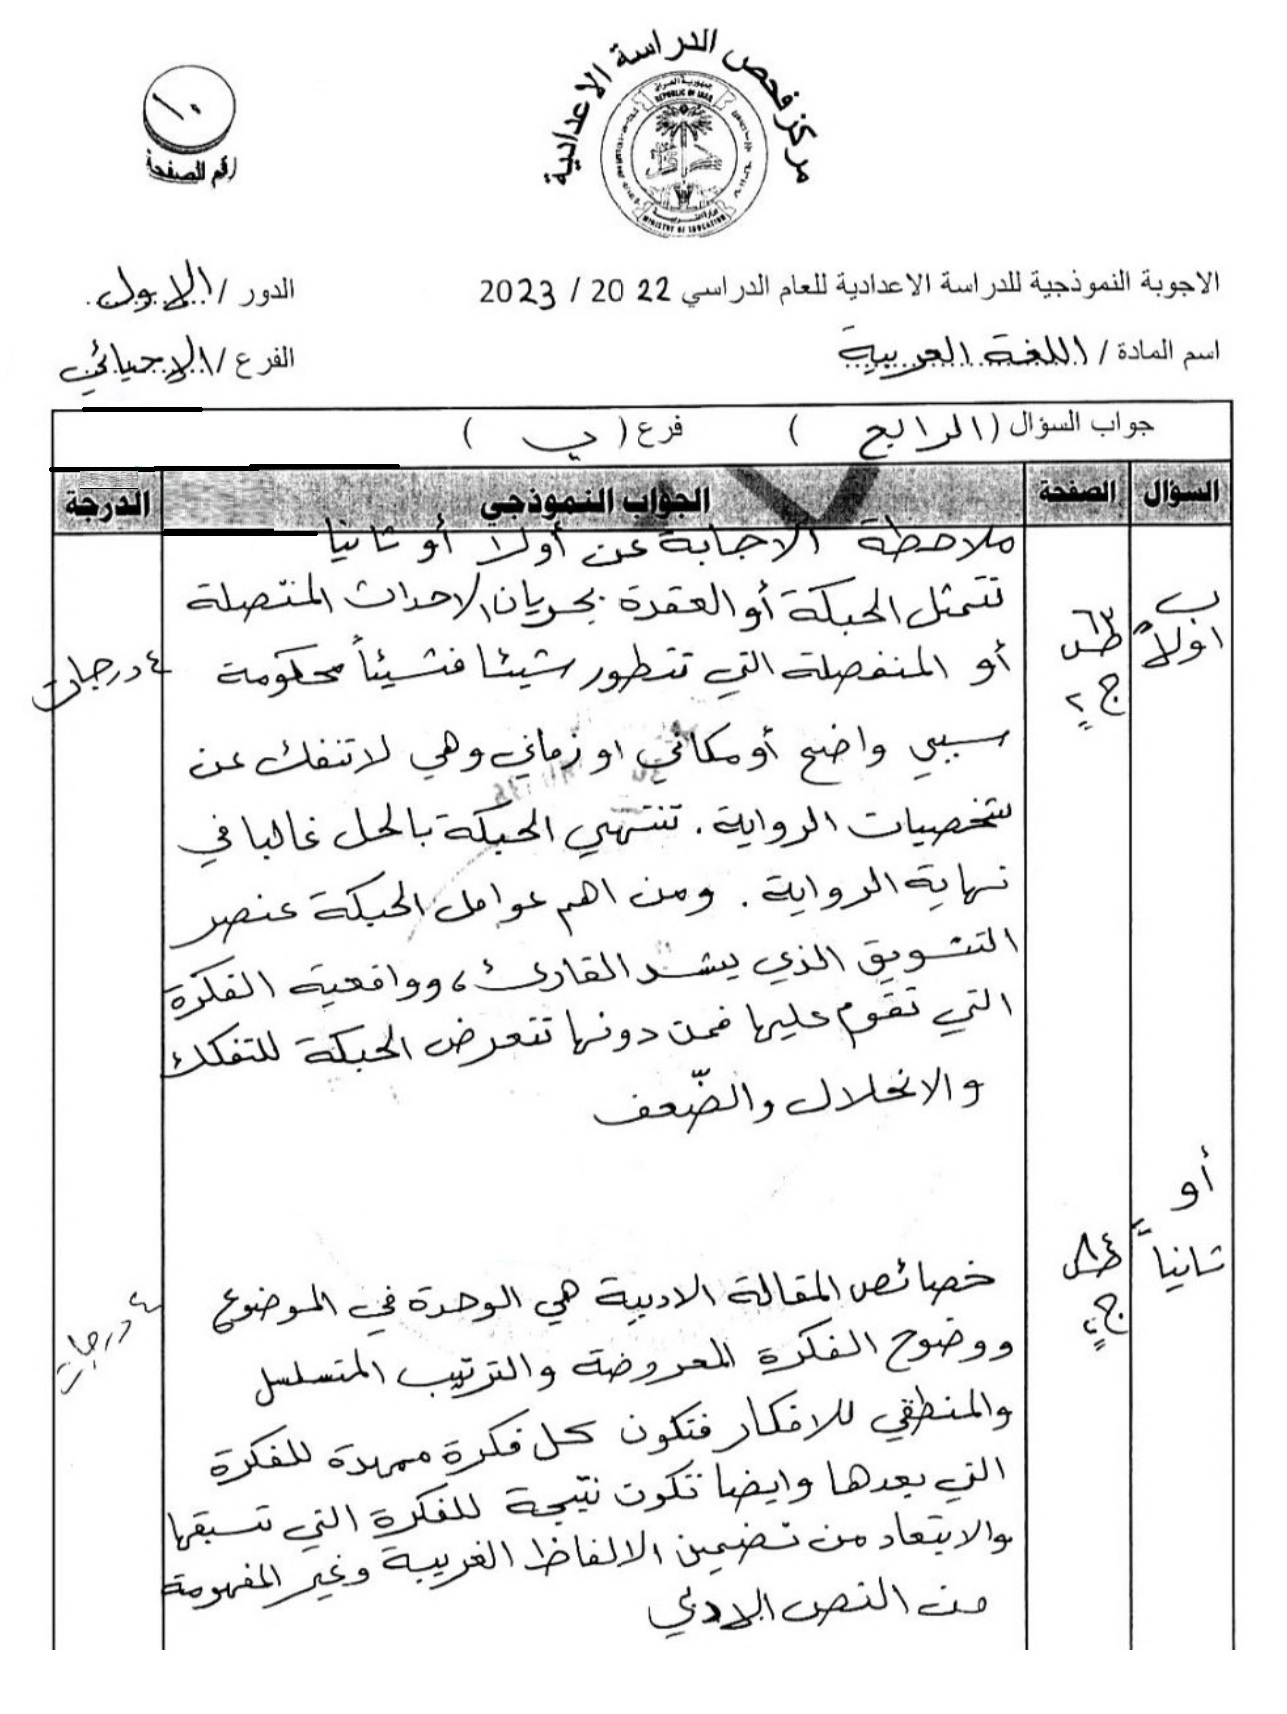 مركز فحص الدراسة الاعدادية
جمهورية العراق
REPUBLIC OF IRAQ
وزارة التربية
MINISTRY OF EDUCATION
١٠
رقم الصفحة
الاجوبة النموذجية للدراسة الاعدادية للعام الدراسي 2022 / 2023
الدور / الاول
اسم المادة / اللغة العربية
الفرع / الاحيائي
جواب السؤال ( الرابع ) فرع ( ب )
السؤال الصفحة الجواب النموذجي الدرجة
ملاحظة الاجابة عن أولا أو ثانيا
ب
اولاً
ص ٦٣
ج ٢
٤ درجات
تتمثل الحبكة أو العقدة بجريان الاحداث المتصلة
أو المنفصلة التي تتطور شيئا فشيئاً محكومة
سببي واضح أو مكاني او زماني وهي لا تنفك عن
شخصيات الرواية . تنتهي الحبكة بالحل غالبا في
نهاية الرواية . ومن اهم عوامل الحبكة عنصر
التشويق الذي يشد القارئ ، وواقعية الفكرة
التي تقوم عليها فمن دونها تتعرض الحبكة للتفكك
والانحلال والضّعف
أو
ثانياً
ص ٨٤
ج ٢
٤ درجات
خصائص المقالة الادبية هي الوحدة في الموضوع
ووضوح الفكرة المعروضة والترتيب المتسلسل
والمنطقي للافكار فتكون كل فكرة ممهدة للفكرة
التي بعدها وايضا تكون نتيجة للفكرة التي تسبقها
والابتعاد من تضمين الالفاظ الغريبة وغير المفهومة
من النص الادبي